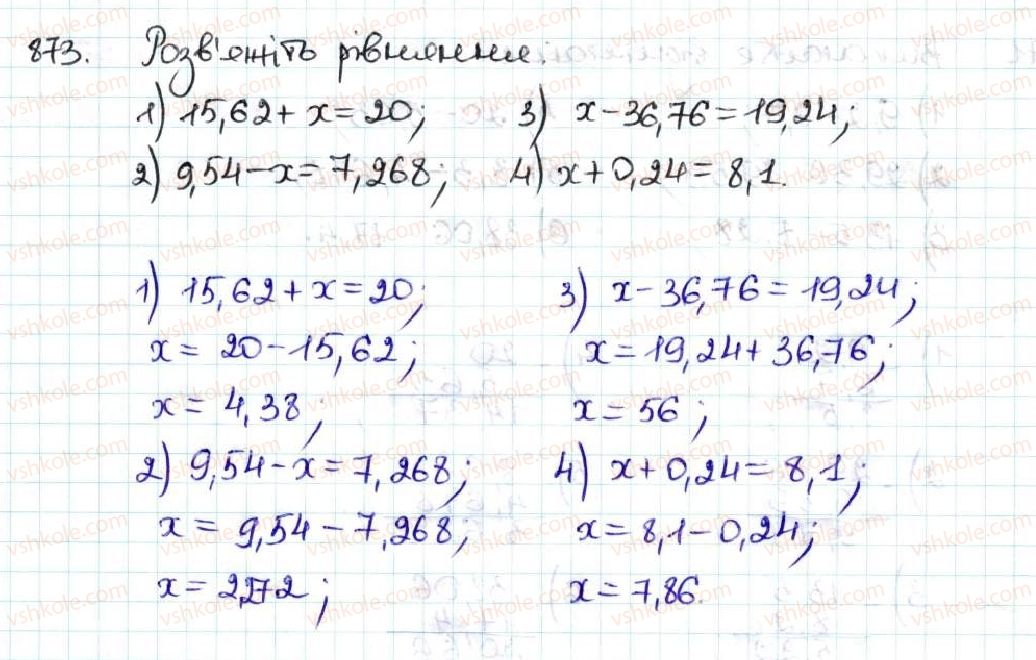 873. Розв'яжіть рівняння:
1) 15,62 + x = 20; 3) x - 36,76 = 19,24;
2) 9,54 - x = 7,268; 4) x + 0,24 = 8,1.
1) 15,62 + x = 20;
x = 20 - 15,62;
x = 4,38;
2) 9,54 - x = 7,268;
x = 9,54 - 7,268;
x = 2,272;
3) x - 36,76 = 19,24;
x = 19,24 + 36,76;
x = 56;
4) x + 0,24 = 8,1;
x = 8,1 - 0,24;
x = 7,86.